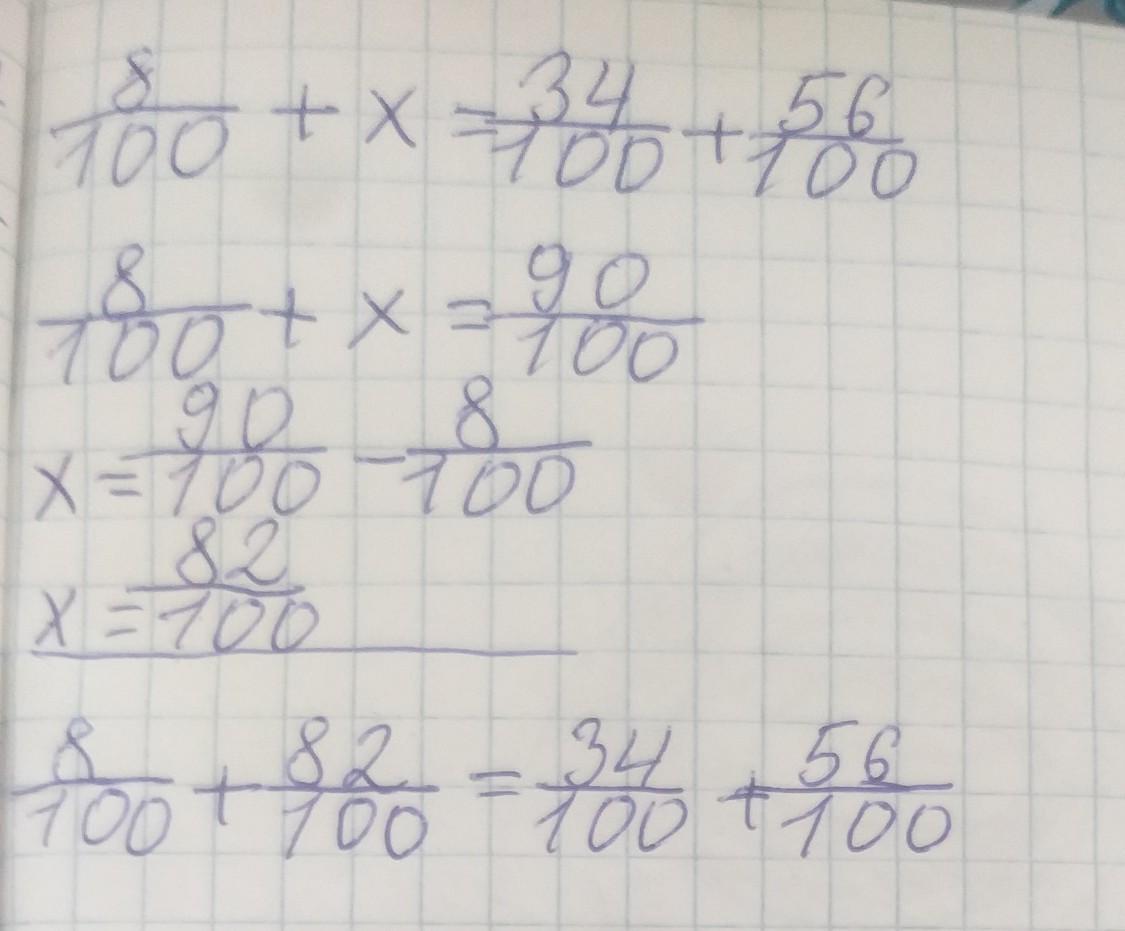 8/100 + x = 34/100 + 56/100
8/100 + x = 90/100
x = 90/100 - 8/100
x = 82/100
8/100 + 82/100 = 34/100 + 56/100